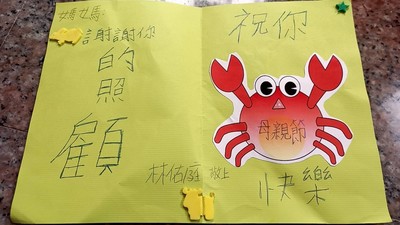 媽媽:
謝謝你
的照顧
林佑庭 敬上
祝你
母親節
快樂